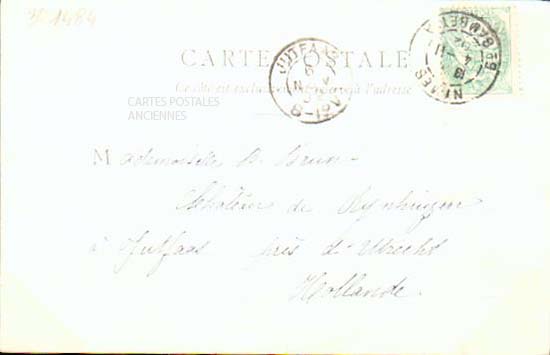 30 1484
CARTE POSTALE
Ce côté est exclusivement réservé à l'adresse
CARTES POSTALES
ANCIENNES
JUTFAAS
NIMES
GAMBETTA
Mademoiselle de Brun
Château de Rijnhuizen
à Jutfaas près d'Utrecht
Hollande.